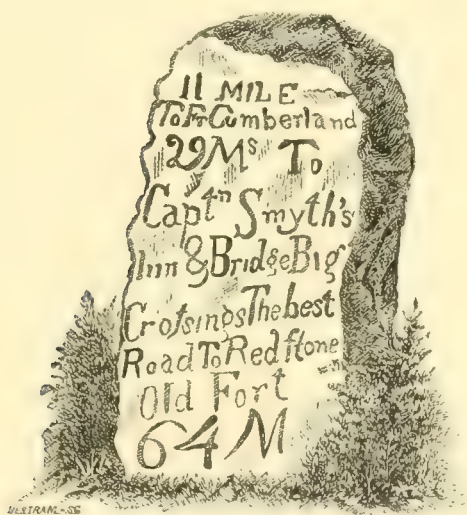 11 MILE
To Fr Cumberland
29 Ms To
Captn Smyth's
Inn & Bridge Big
Crofsings The best
Road To Redſtone
Old Fort
64 M
BERTRAM-SC